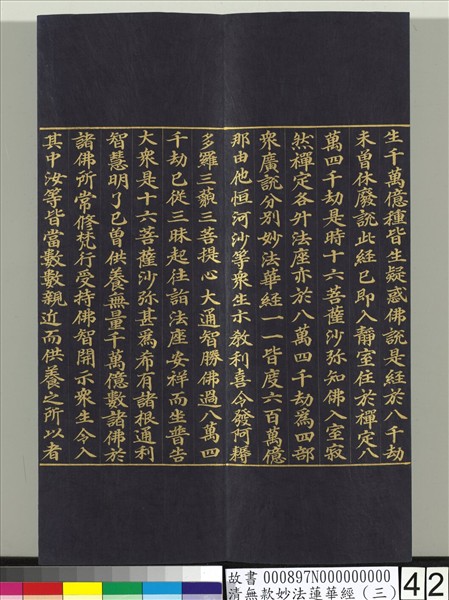 生千萬億種皆生疑惑佛說是經於八千劫
未曾休廢說此經已即入靜室住於禪定八
萬四千劫是時十六菩薩沙弥知佛入室寂
然禪定各升法座亦於八萬四千劫爲四部
衆廣說分別妙法華經一一皆度六百萬億
那由他恒河沙等衆生示教利喜令發阿耨
多羅三藐三菩提心大通智勝佛過八萬四
千劫已從三昧起往詣法座安祥而坐普告
大衆是十六菩薩沙弥甚爲希有諸根通利
智慧明了已曾供養無量千萬億數諸佛於
諸佛所常修梵行受持佛智開示衆生令入
其中汝等皆當數數親近而供養之所以者
故書 000897N000000000
清無款妙法蓮華經(三)
42